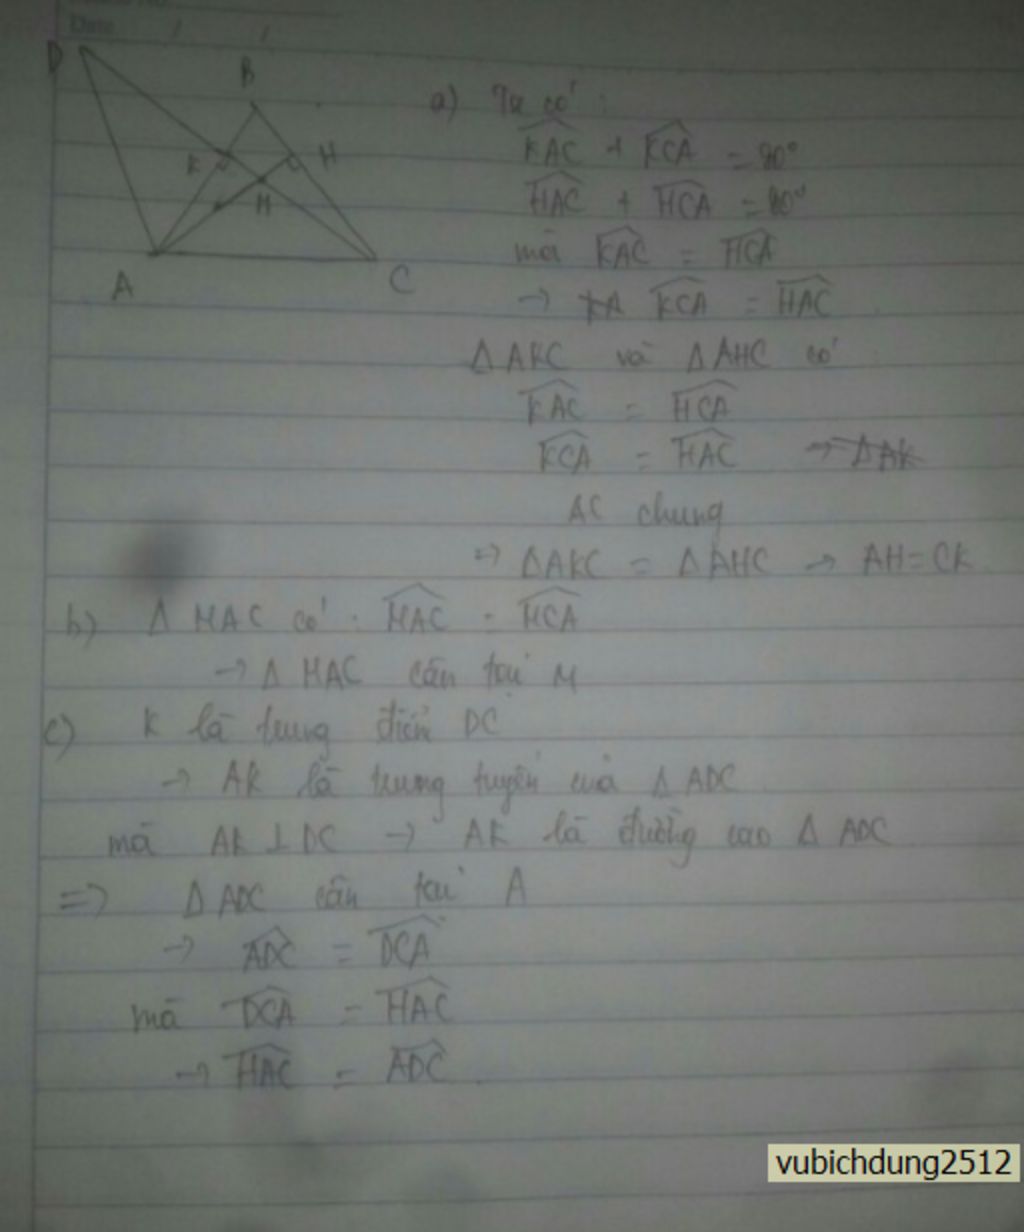 Date / /
D
B
K
H
M
A
C
a) Ta có :
K̂AC + K̂CA = 90°
ĤAC + ĤCA = 90°
mà K̂AC = ĤCA
→ K̂CA = ĤAC
Δ AKC và Δ AHC có
K̂AC = ĤCA
K̂CA = ĤAC → ΔAK
AC chung
=> ΔAKC = ΔAHC → AH = CK
b) Δ MAC có : M̂AC = M̂CA
→ Δ MAC cân tại M
c) K là trung điểm DC
→ AK là trung tuyến của Δ ADC
mà AK ⊥ DC → AK là đường cao Δ ADC
=> Δ ADC cân tại A
→ ÂDC = D̂CA
mà D̂CA = ĤAC
→ ĤAC = ÂDC
vubichdung2512